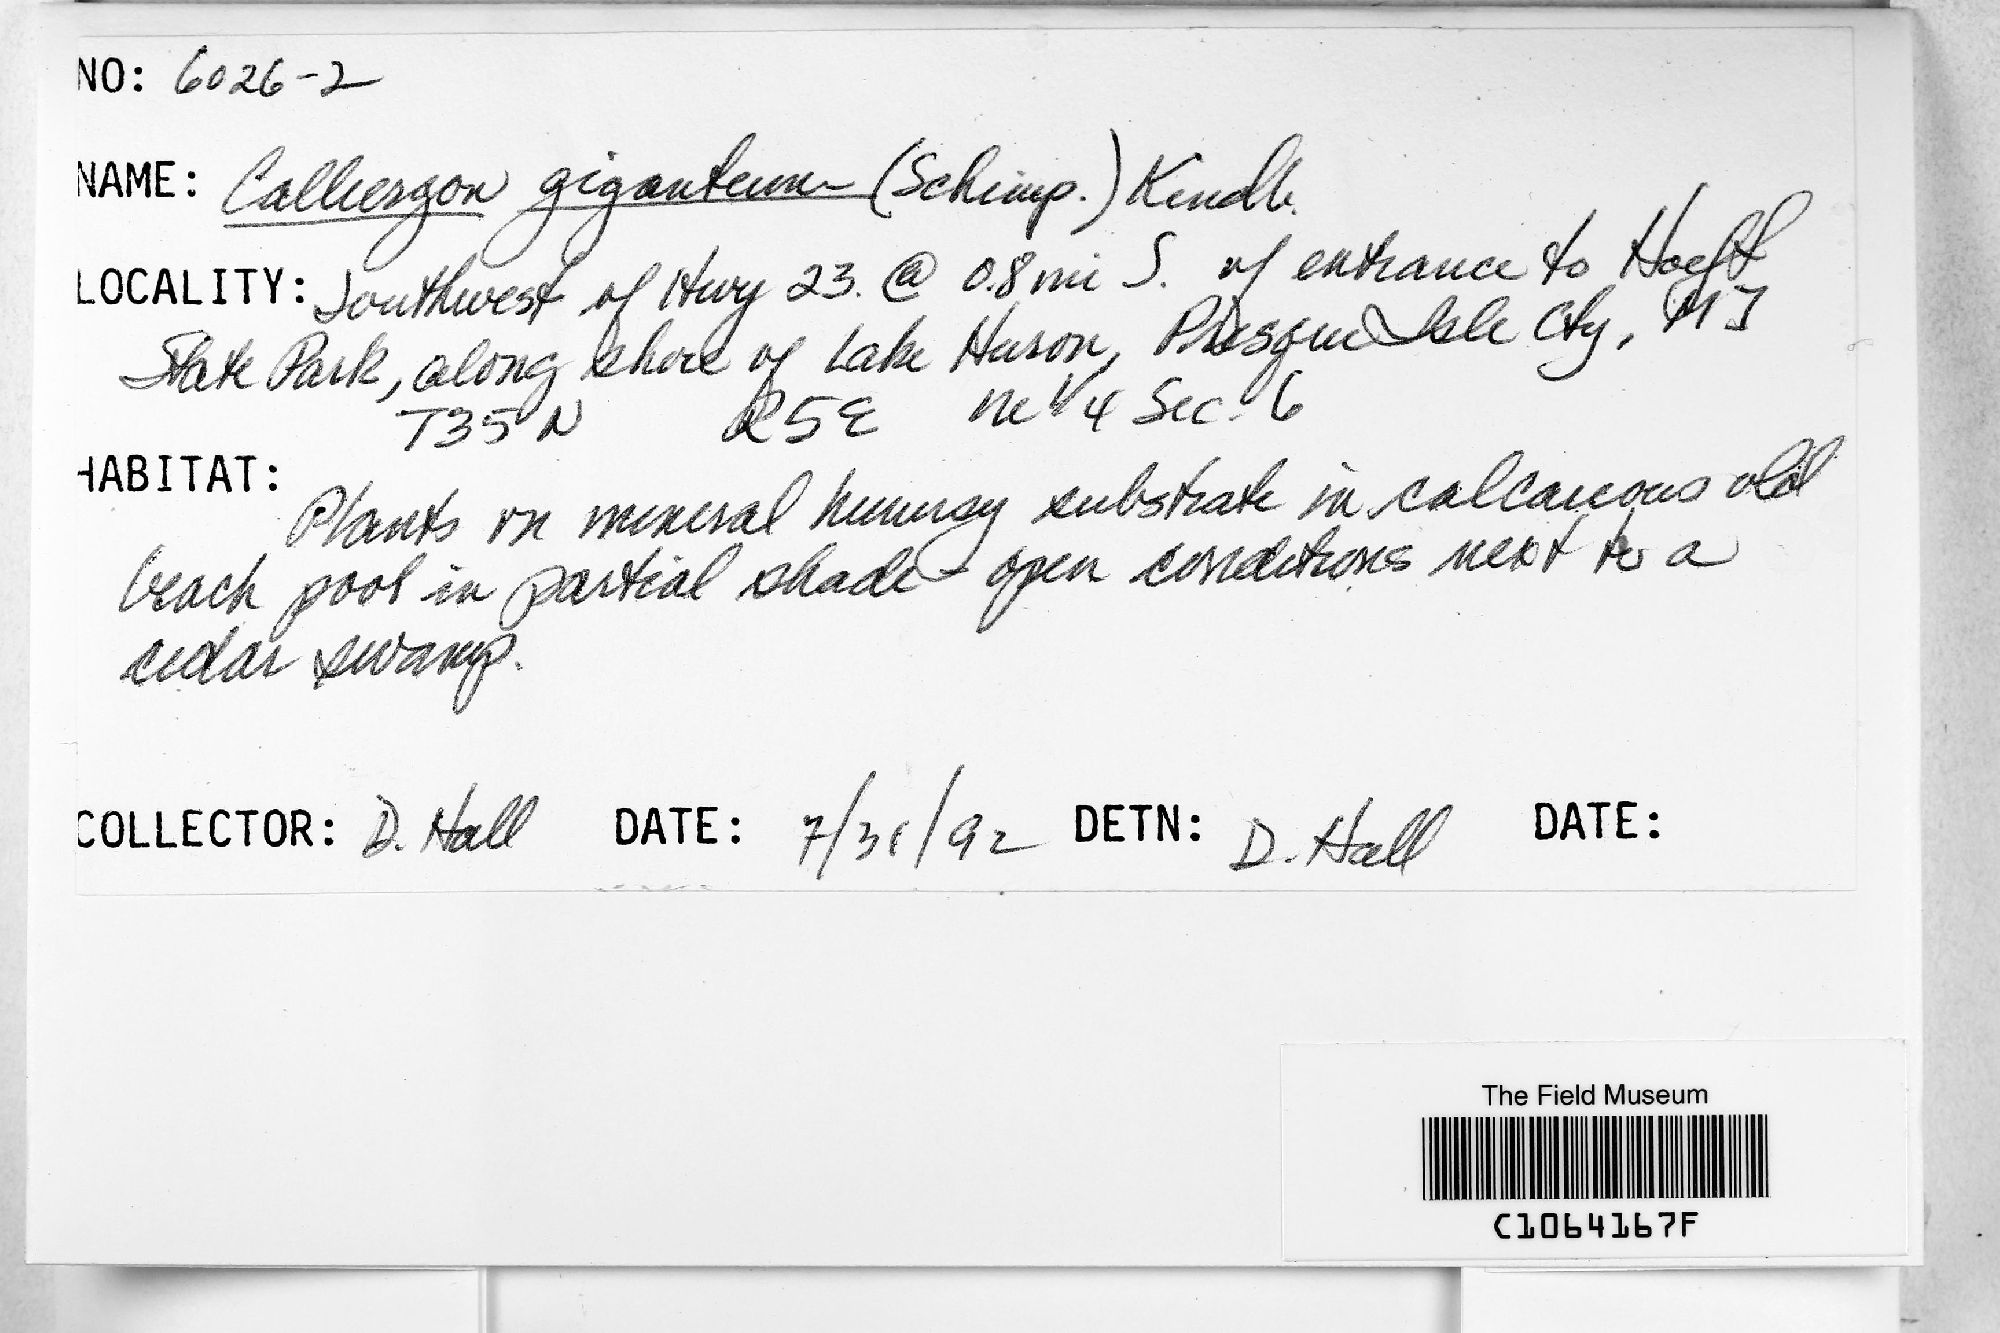 NO: 6026-2
NAME: Calliergon giganteum (Schimp.) Kindb.
LOCALITY: Southwest of Hwy 23. @ 0.8 mi S. of entrance to Hoeft
State Park, along shore of Lake Huron, Presque Isle Cty, MI
T35N R5E NE 1/4 Sec. 6
HABITAT:
Plants on mineral hummsy substrate in calcareous old
beach pool in partial shade - open conditions next to a
cedar swamp.
COLLECTOR: D. Hall DATE: 7/31/92 DETN: D. Hall DATE:
The Field Museum
C1064167F